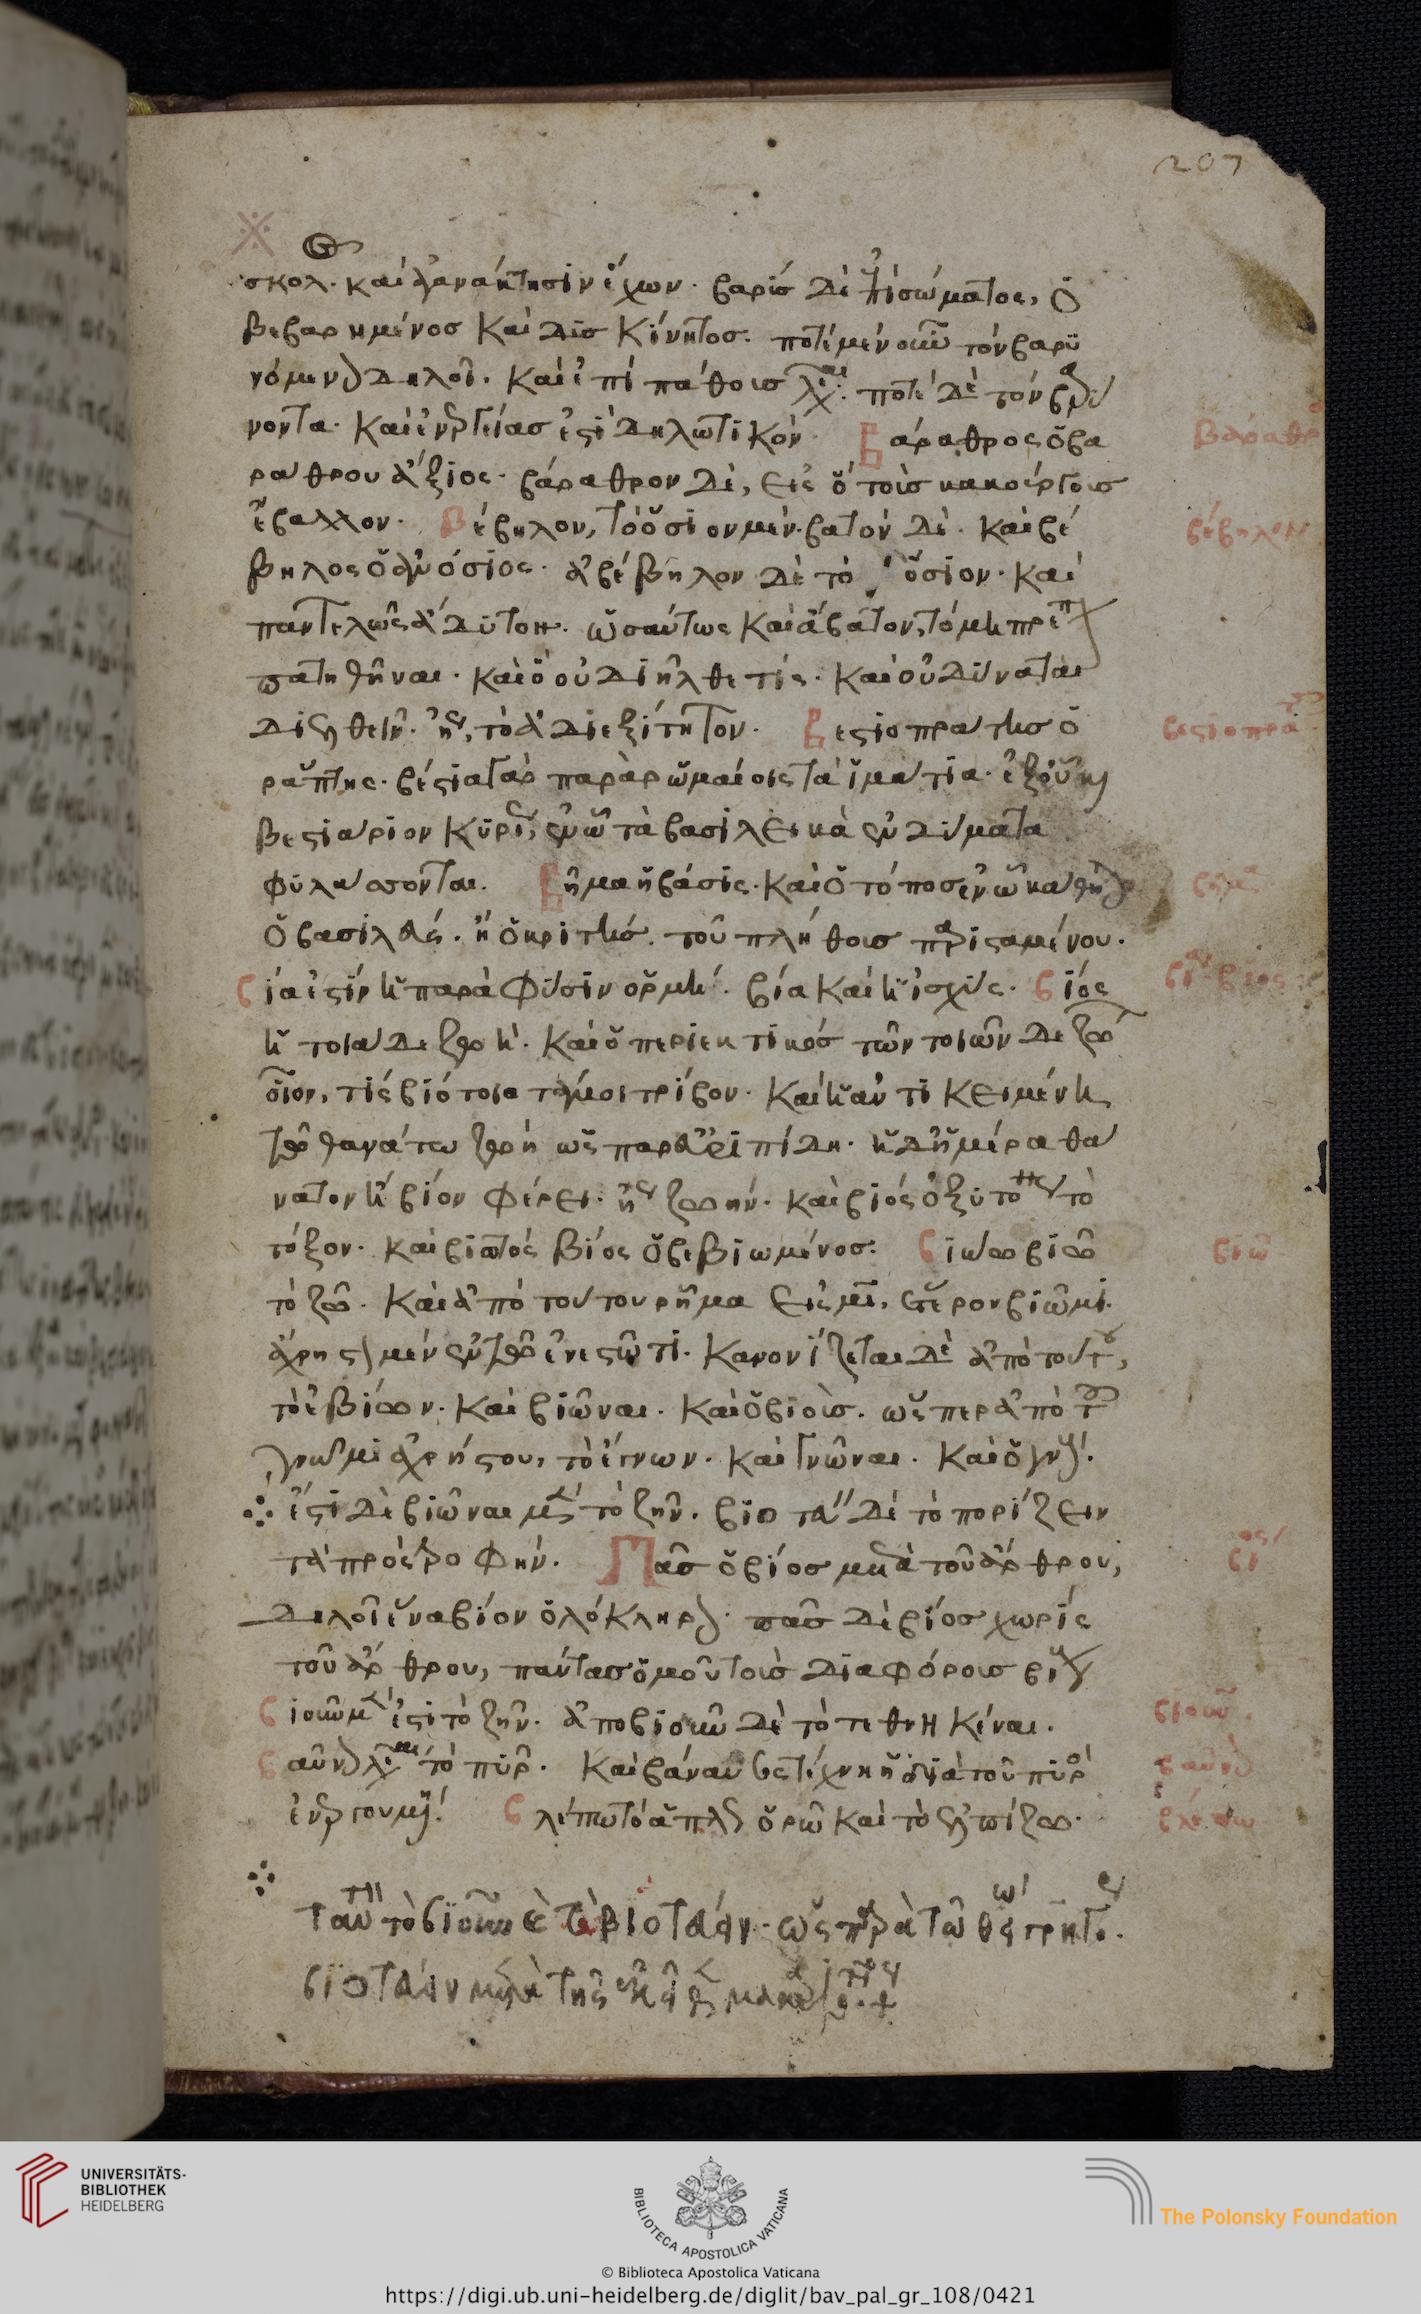 207
σκολ. καὶ ἀνάκτησιν ἔχων. βαρὺς δὲ ἐπὶ σώματος, ὁ
βεβαρημένος καὶ δυσκίνητος. ποτὲ μὲν οὖν τὸν βαρυ
νόμενον δηλοῖ. καὶ ἐπὶ πάθους λέγεται. ποτὲ δὲ τὸν βαρύ
νοντα. καὶ ἐνεργείας ἐστὶ δηλωτικόν. Βάραθρος ὁ βα
ράθρου ἄξιος. βάραθρον δὲ, εἰς ὃ τοὺς κακούργους
ἔβαλλον. Βέβηλον, τὸ ὅσιον μὲν. βατὸν δὲ. καὶ βέ
βηλος ὁ ἀνόσιος. ἀβέβηλον δὲ τὸ ὅσιον. καὶ
παντελῶς ἄδυτον. ὡσαύτως καὶ ἄβατον, τὸ μὴ περι
πατηθῆναι. καὶ ὃ οὐ διῆλθε τίς. καὶ οὐ δύναται
διελθεῖν. ἤγουν, τὸ ἀδιεξίτητον. Βεστιοπράτης ὁ
ράπτης. βέστια γὰρ παρὰ ρωμαίοις τὰ ἱμάτια. ἐξ οὗ καὶ
βεστιάριον κυρίως, ἐν ᾧ τὰ βασιλεικὰ ἐνδύματα
φυλάσσονται. Βῆμα ἡ βάσις. καὶ ὁ τόπος ἐν ᾧ κάθηται
ὁ βασιλεύς. ἢ ὁ κριτὴς. τοῦ πλήθους παρισταμένου.
Βία ἐστὶν ἡ παρὰ φύσιν ὁρμή. βία καὶ ἡ ἰσχύς. Βίος
ἡ τοιάδε ζωή. καὶ ὁ περιεκτικός τῶν τοιῶνδε ζωῶν
οἷον, τίς βιότοιο τάμοι τρίβον. καὶ ἡ ἀντικειμένη
τῷ θανάτω ζωή ὡς παρ' εὐριπίδη. ἡδ' ἡμέρα θά
νατον ἢ βίον φέρει. ἤγουν ζωήν. καὶ βιός ὀξυτόνως τὸ
τόξον. καὶ βιωτός βίος ὁ βεβιωμένος. Βιώω βιῶ
τὸ ζῶ. καὶ ἀπὸ τούτου ρῆμα εἰς μι, δεύτερον βίωμι.
ἄχρηστον μὲν ἐν τῷ ἐνεστῶτι. κανονίζεται δὲ ἀπὸ τούτου,
τὸ ἐβίων. καὶ βιῶναι. καὶ ὁ βιούς. ὥσπερ ἀπὸ τοῦ
γνῶμι ἀχρήστου, τὸ ἔγνων. καὶ γνῶναι. καὶ ὁ γνούς.
ἔστι δὲ βιῶναι μὲν τὸ ζῆν. βιοτεύειν δὲ τὸ πορίζειν
τὰ πρὸς τροφήν. Πᾶς ὁ βίος μετὰ τοῦ ἄρθρου,
δηλοῖ ἕνα βίον ὁλόκληρον. πᾶς δὲ βίος χωρίς
τοῦ ἄρθρου, πάντας ὁμοῦ τοὺς διαφόρους βίους
Βιοῦν μὲν ἐστὶ τὸ ζῆν. ἀποβιοῦν δὲ τὸ τεθνηκέναι.
Βαῦνον λέγεται τὸ πῦρ. καὶ βάναυσος τέχνη ἡ διὰ τοῦ πυρὸς
ἐνεργουμένη. Βλέπω τὸ ἁπλῶς ὁρῶ καὶ τὸ ἐλπίζω.
βάραθρος
βέβηλον
βεστιοπράτης
βῆμα
βία βίος
βιῶ
βίος
βιοῦν.
βαῦνον
βλέπω
UNIVERSITÄTS-
BIBLIOTHEK
HEIDELBERG
BIBLIOTECA APOSTOLICA VATICANA
The Polonsky Foundation
© Biblioteca Apostolica Vaticana
https://digi.ub.uni-heidelberg.de/diglit/bav_pal_gr_108/0421